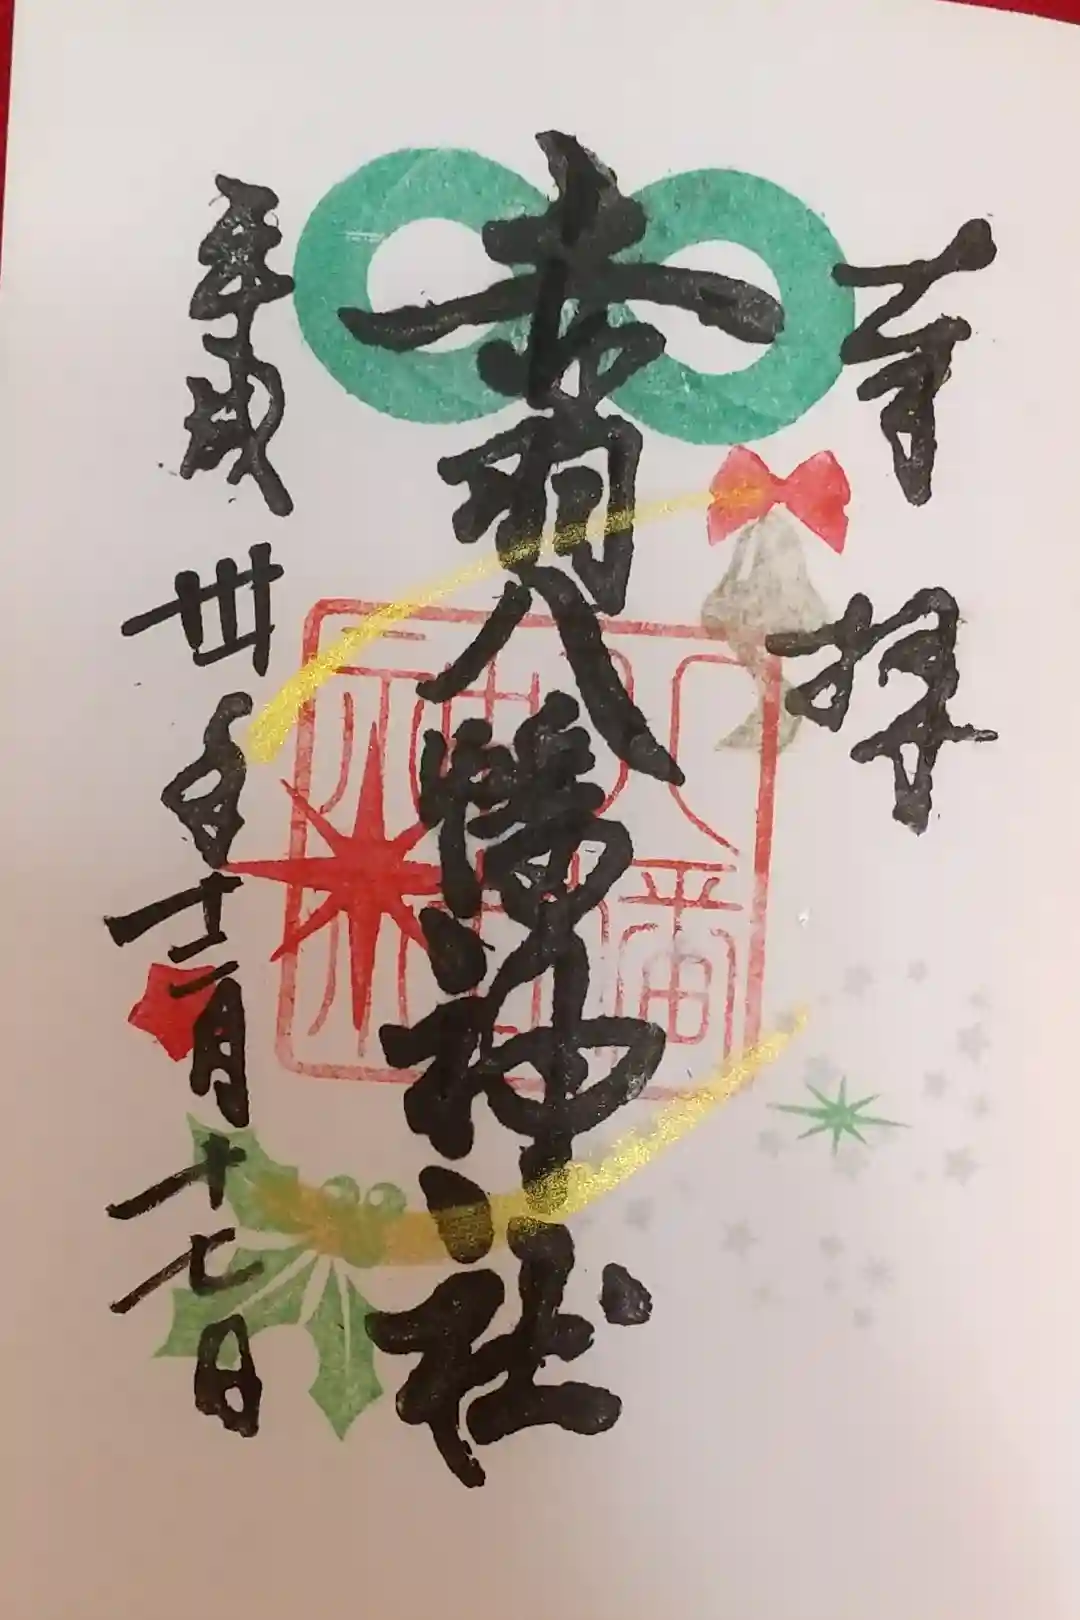 奉拝
赤羽八幡神社
八幡
神社
平成卅年十二月十七日